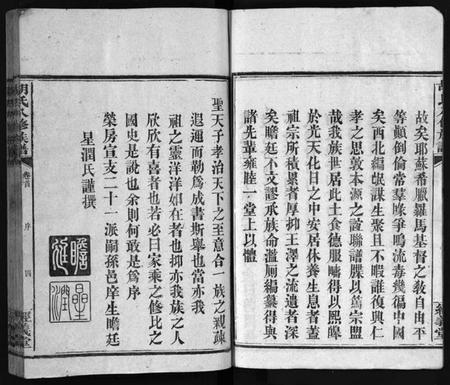 故矣耶蘇希臘羅馬基督之教自由平
等顚倒倫常羣喙爭鳴流毒幾徧中國
矣西北編氓謀生聚且不暇誰復興仁
孝之思敦本源之誼聯譜牒以篤宗盟
哉我族世居此土食德服疇得以熙皥
於光天化日之中安居休養生息者蓋
祖宗所積累者厚抑王澤之流遺者深
矣瞻廷不文謬承族命濫厠編纂得與
諸先輩雍睦一堂上以體
經義堂
聖天子孝治天下之至意合一族之親疎
遐邇而勒爲成書斯舉也當亦我
祖之靈洋洋如在者也抑亦我族之人
欣欣有喜者也若必曰家乘之修比之
國史是說也余則何敢是爲序
榮房宣支二十一派嗣孫邑庠生瞻廷
星潤氏謹撰
胡氏八修族譜
卷首
序
四
經義堂